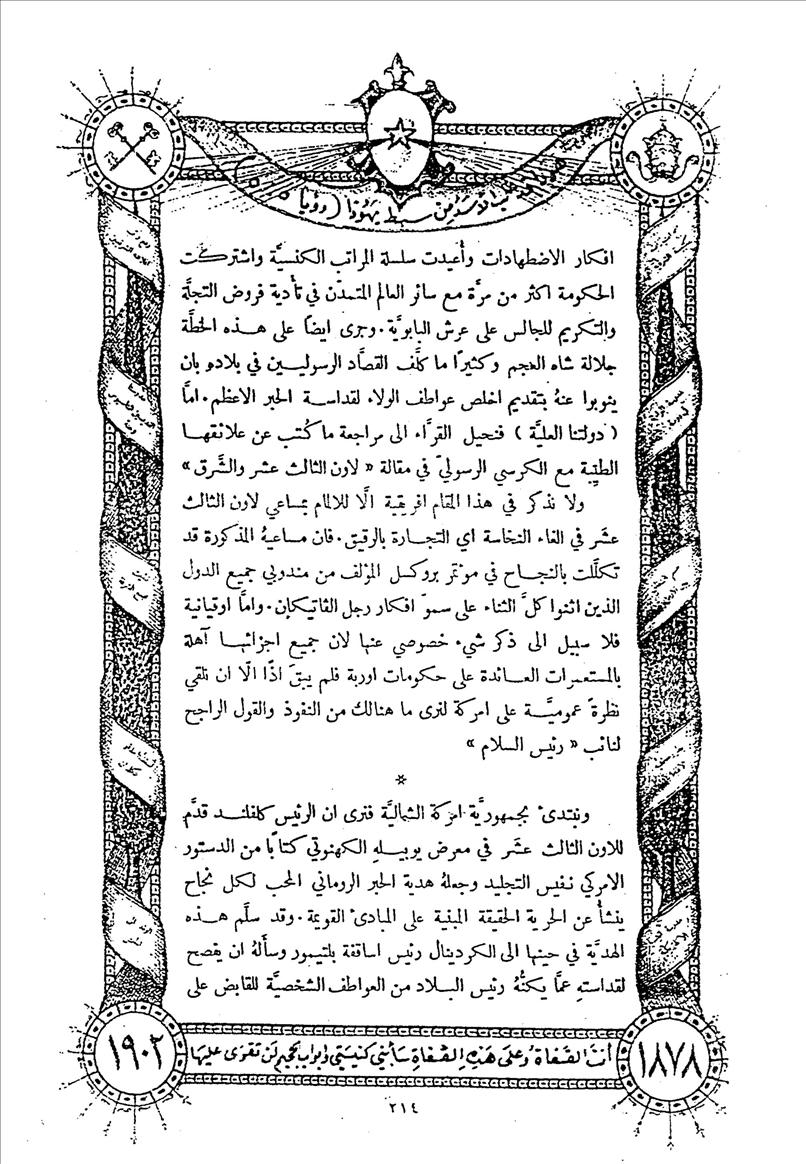 الاسد من سبط يهوذا (رؤيا ٥:٥)
افكار الاضطهادات وأعيدت سلسلة المراتب الكنسيَّة واشتركت
الحكومة اكثر من مرَّة مع سائر العالم المتمدّن في تأدية فروض التجلَّة
والتكريم للجالس على عرش البابويَّة. وجرى ايضًا على هذه الخطَّة
جلالة شاه العجم وكثيرًا ما كلَّف القصَّاد الرسوليين في بلادهِ بان
ينوبوا عنهُ بتقديم اخلص عواطف الولاء لقداسة الحبر الاعظم. امَّا
(دولتنا العليَّة) فنحيل القرَّاء الى مراجعة ما كُتب عن علائقها
الطيِّبة مع الكرسي الرسوليّ في مقالة «لاون الثالث عشر والشَّرق»
ولا نذكر في هذا المقام افريقية الَّا للالمام بمساعي لاون الثالث
عشر في الغاء النخاسة اي التجارة بالرقيق. فان مساعيهُ المذكورة قد
تكللت بالنجاح في موتمر بروكسل المؤلف من مندوبي جميع الدول
الذين اثنوا كلَّ الثناء على سموّ افكار رجل الڤاتيكان. وامَّا اوقيانية
فلا سبيل الى ذكر شيء خصوصي عنها لان جميع اجزائها آهلة
بالمستعمرات العائدة على حكومات اوربة فلم يبقَ اذًا الَّا ان نلقي
نظرةً عموميَّة على امركة لنرى ما هنالك من النفوذ والقول الراجح
لنائب «رئيس السلام»
*
ونبتدئ بجمهوريَّة امركة الشماليَّة فنرى ان الرئيس كلفلند قدَّم
للاون الثالث عشر في معرض يوبيلهِ الكهنوتي كتابًا من الدستور
الامركي نفيس التجليد وجعلهُ هدية الحبر الروماني المحب لكل نجاح
ينشأ عن الحرية الحقيقة المبنية على المبادئ القويمة. وقد سلَّم هذه
الهديَّة في حينها الى الكردينال رئيس اساقفة بلتيمور وسألهُ ان يفصح
لقداستهِ عمَّا يكنُّهُ رئيس البلاد من العواطف الشخصيَّة للقابض على
١٨٧٨
أنت الصفاة وعلى هذه الصفاة سأبني كنيستي وابواب الجحيم لن تقوى عليها
١٩٠٢
٢١٤